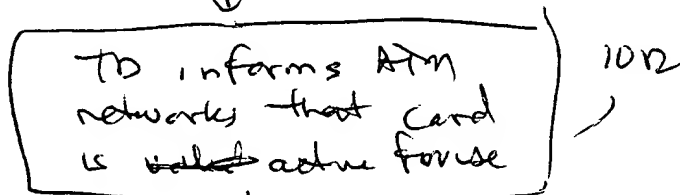 TD informs ATM
networks that card
is active for use
1012